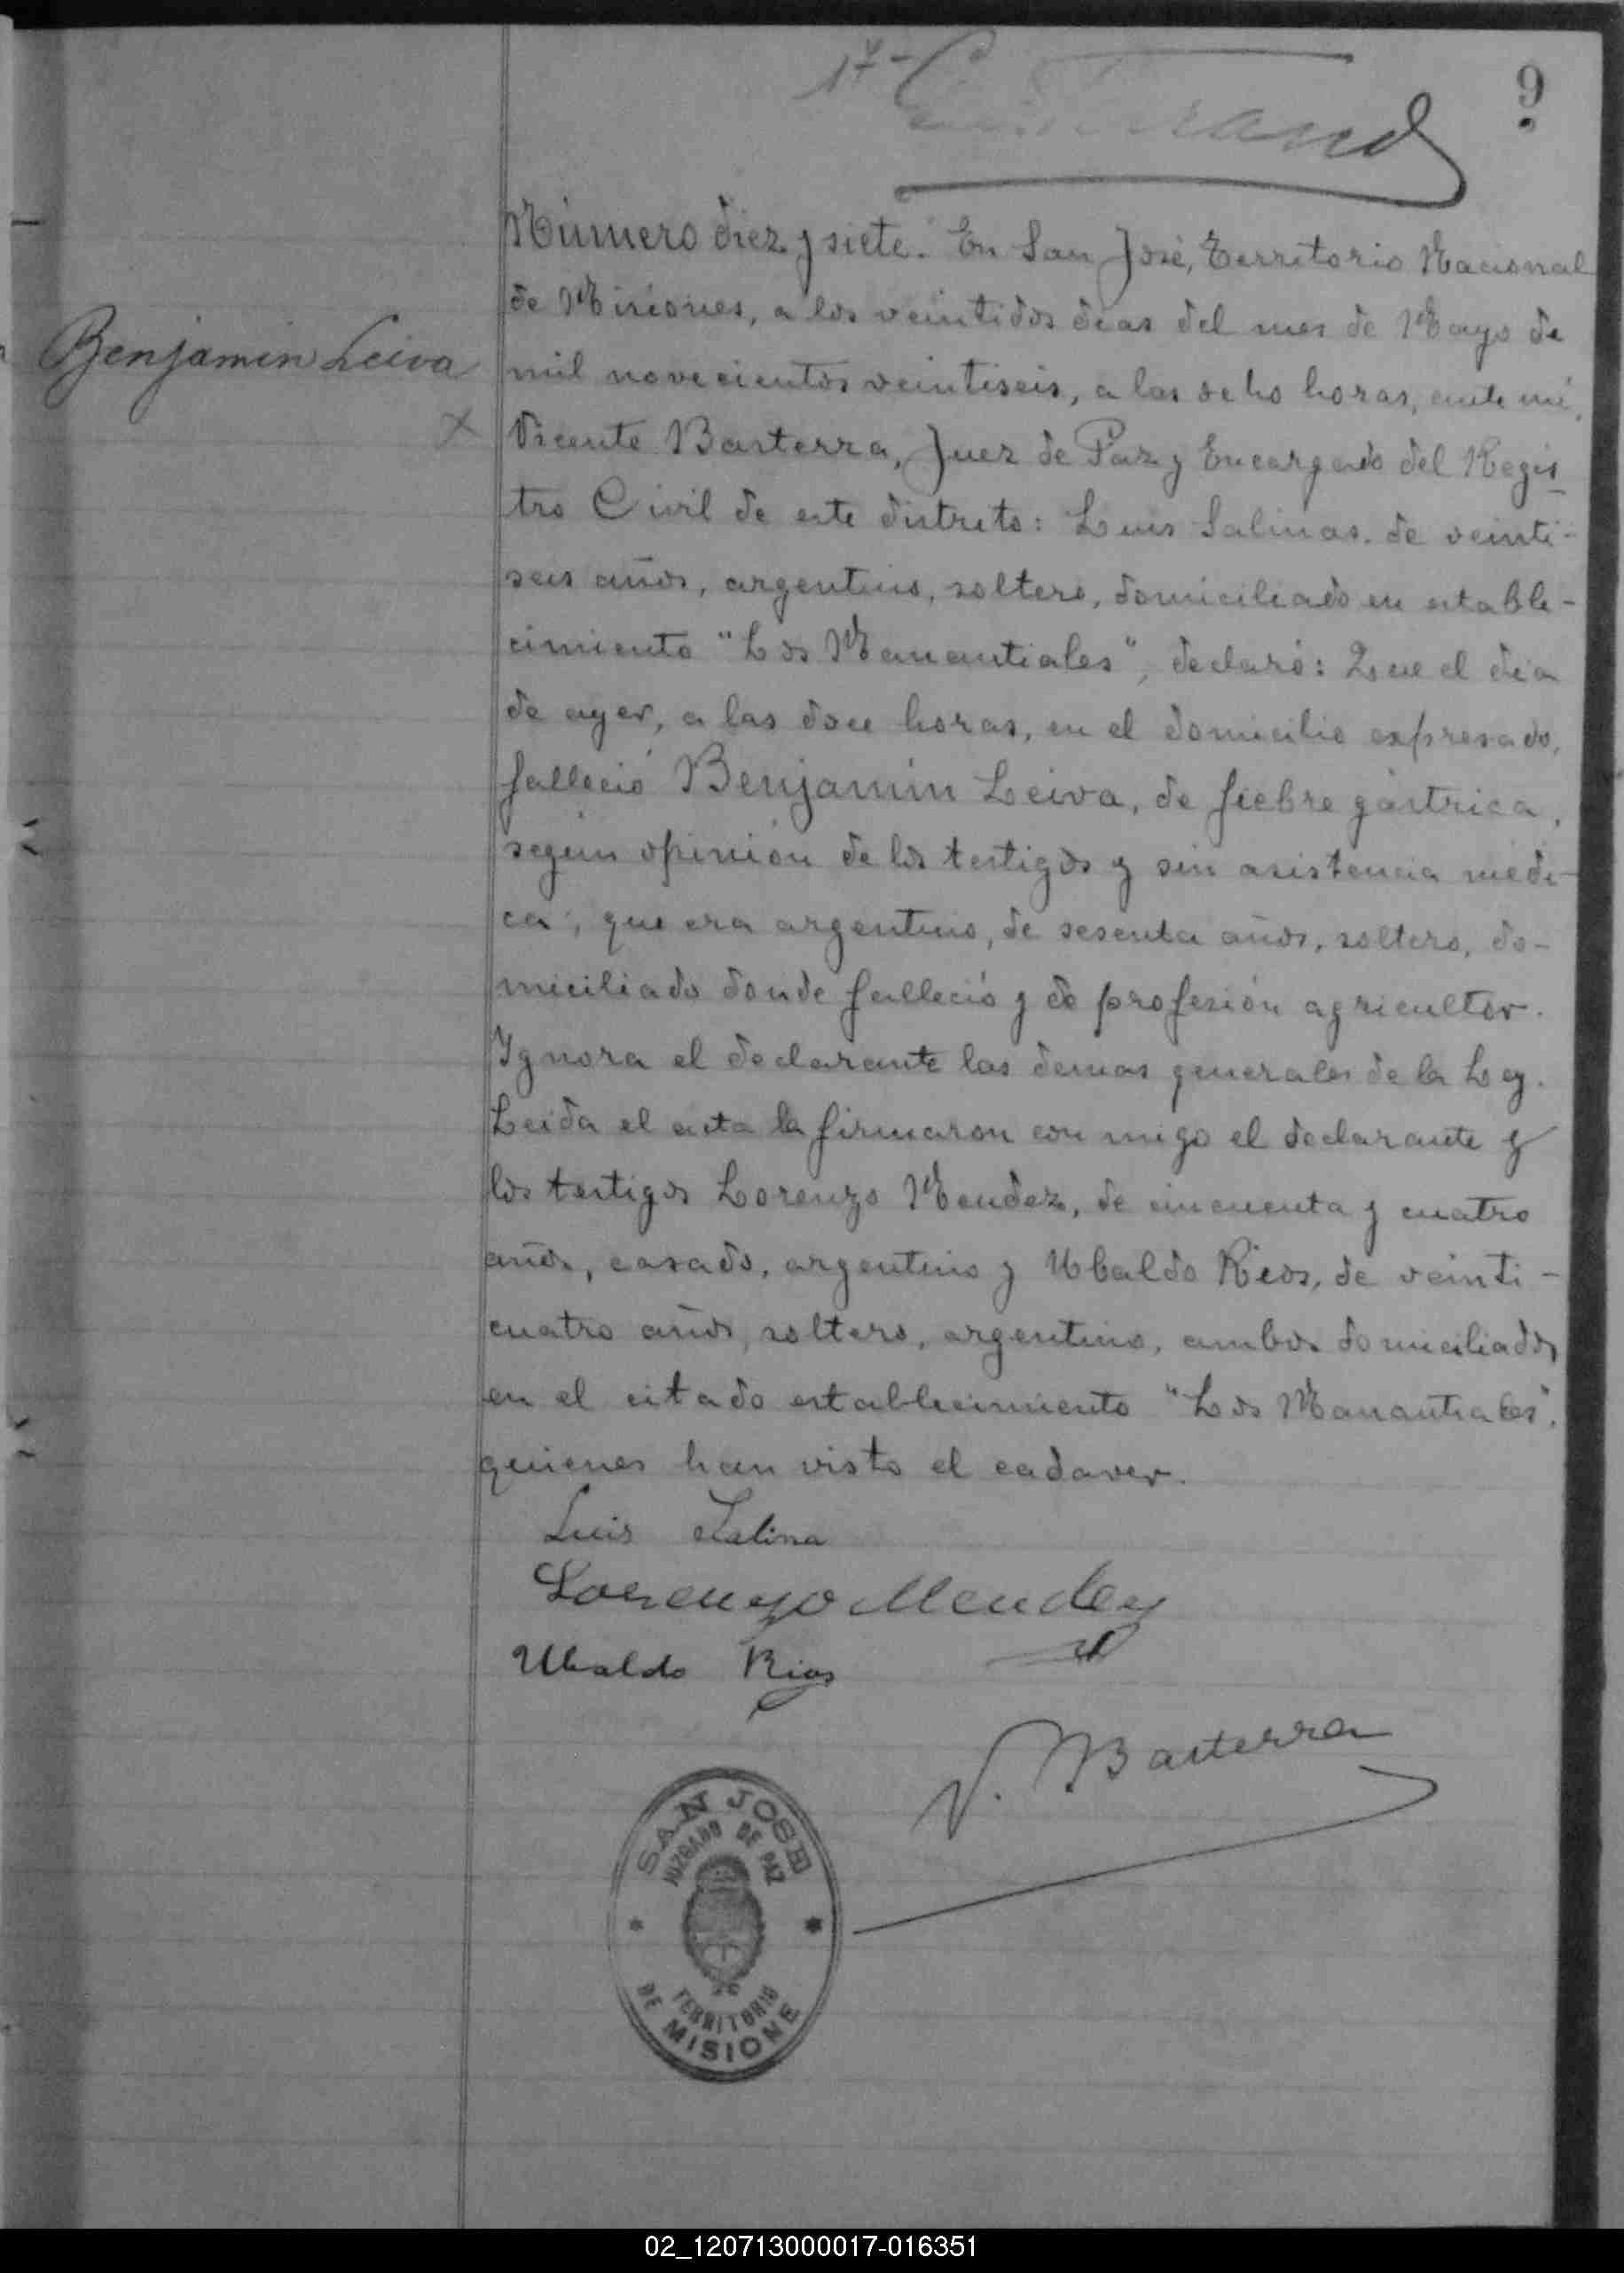 9
Número diez y siete. En San José, Territorio Nacional
de Misiones, a los veintidos dias del mes de Mayo de
Benjamin Leiva
mil novecientos veintiseis, a las ocho horas, ante mi,
Vicente Basterra, Juez de Paz y Encargado del Regis
tro Civil de este distrito: Luis Salinas, de veinti-
seis años, argentino, soltero, domiciliado en estable-
cimiento "Los Manantiales", declaró: Que el dia
de ayer, a las doce horas, en el domicilio expresado,
falleció Benjamin Leiva, de fiebre gástrica,
según opinión de los testigos y sin asistencia médi-
ca, que era argentino, de sesenta años, soltero, do-
miciliado donde falleció y de profesión agricultor.
Ygnora el declarante las demas generales de la Ley.
Leida el acta la firmaron con migo el declarante y
los testigos Lorenzo Mendez, de cincuenta y cuatro
años, casado, argentino y Ubaldo Rios, de veinti-
cuatro años, soltero, argentino, ambos domiciliados
en el citado establecimiento "Los Manantiales",
quienes han visto el cadaver.
Luis Salina
Lorenzo Mendez
Ubaldo Rios
V. Basterra
SAN JOSE
JUZGADO DE PAZ
TERRITORIO
DE MISIONE
02_120713000017-016351